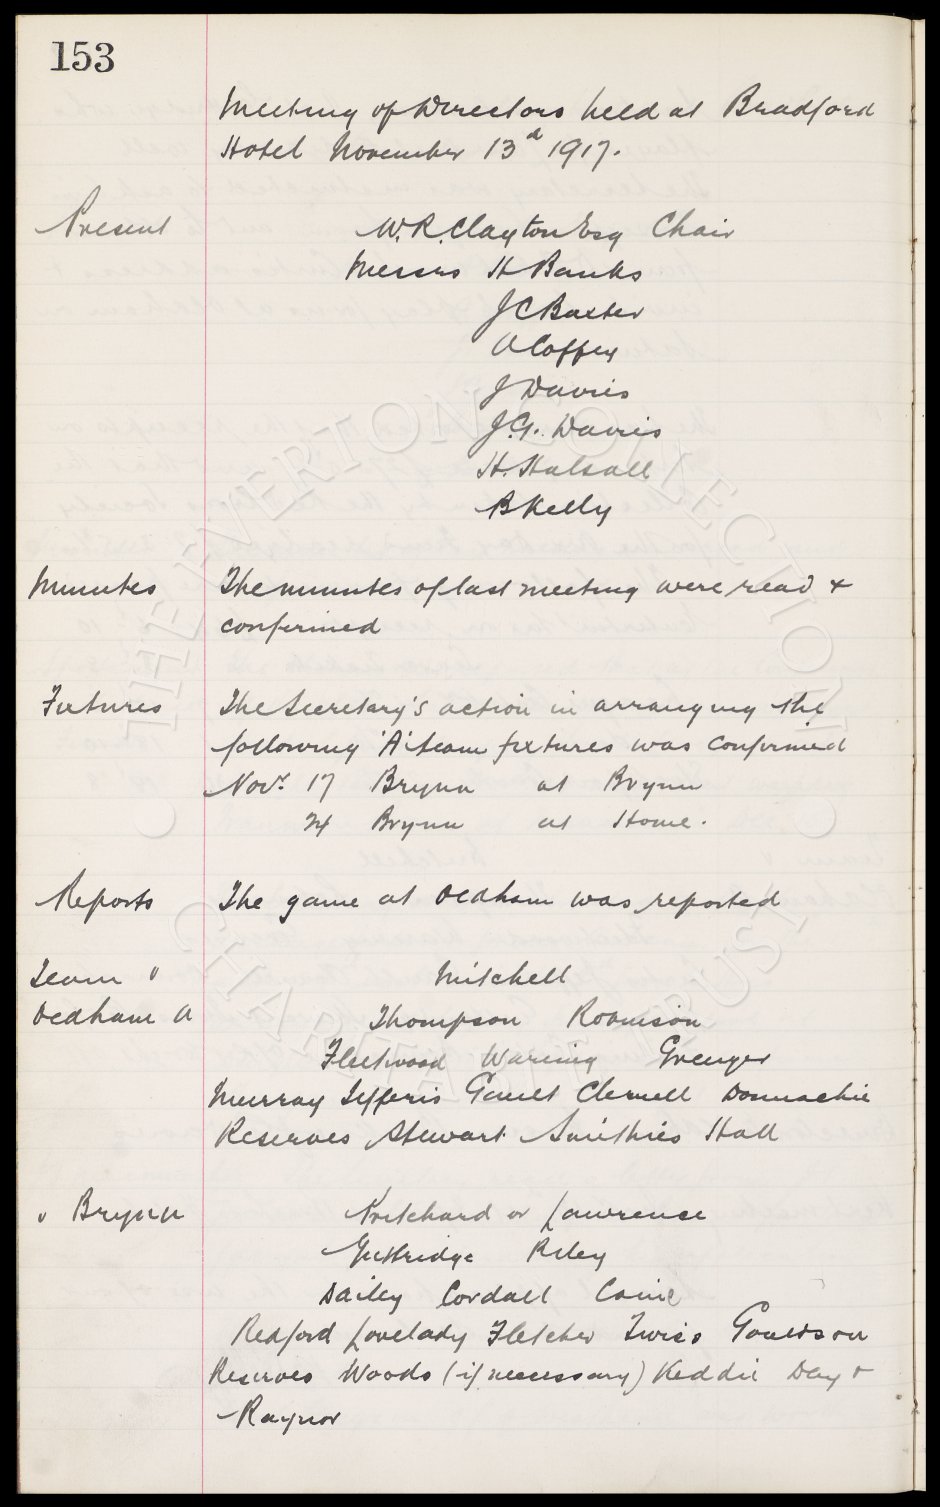 153
Meeting of Directors held at Bradford
Hotel November 13d 1917.
Present W.R. Clayton Esq Chair
Messrs H Banks
J C Baxter
A Coffey
J Davies
J.G. Davies
H. Halsall
B Kelly
Minutes The minutes of last meeting were read &
confirmed
Fixtures The Secretary's action in arranging the
following 'A' team fixtures was confirmed
Novr. 17 Brynn at Brynn
24 Brynn at Home.
Reports The game at Oldham was reported
Team v Mitchell
Oldham A Thompson Robinson
Fleetwood Wareing Grenyer
Murray Jefferis Gault Clennell Donnachie
Reserves Stewart Smithies Hall
v Brynn Pritchard or Lawrence
Guttridge Riley
Dailey Cordall Caine
Redford Lovelady Fletcher Twiss Goulson
Reserves Woods (if necessary) Keddie Day &
Raynor
THE EVERTON COLLECTION
CHARITABLE TRUST